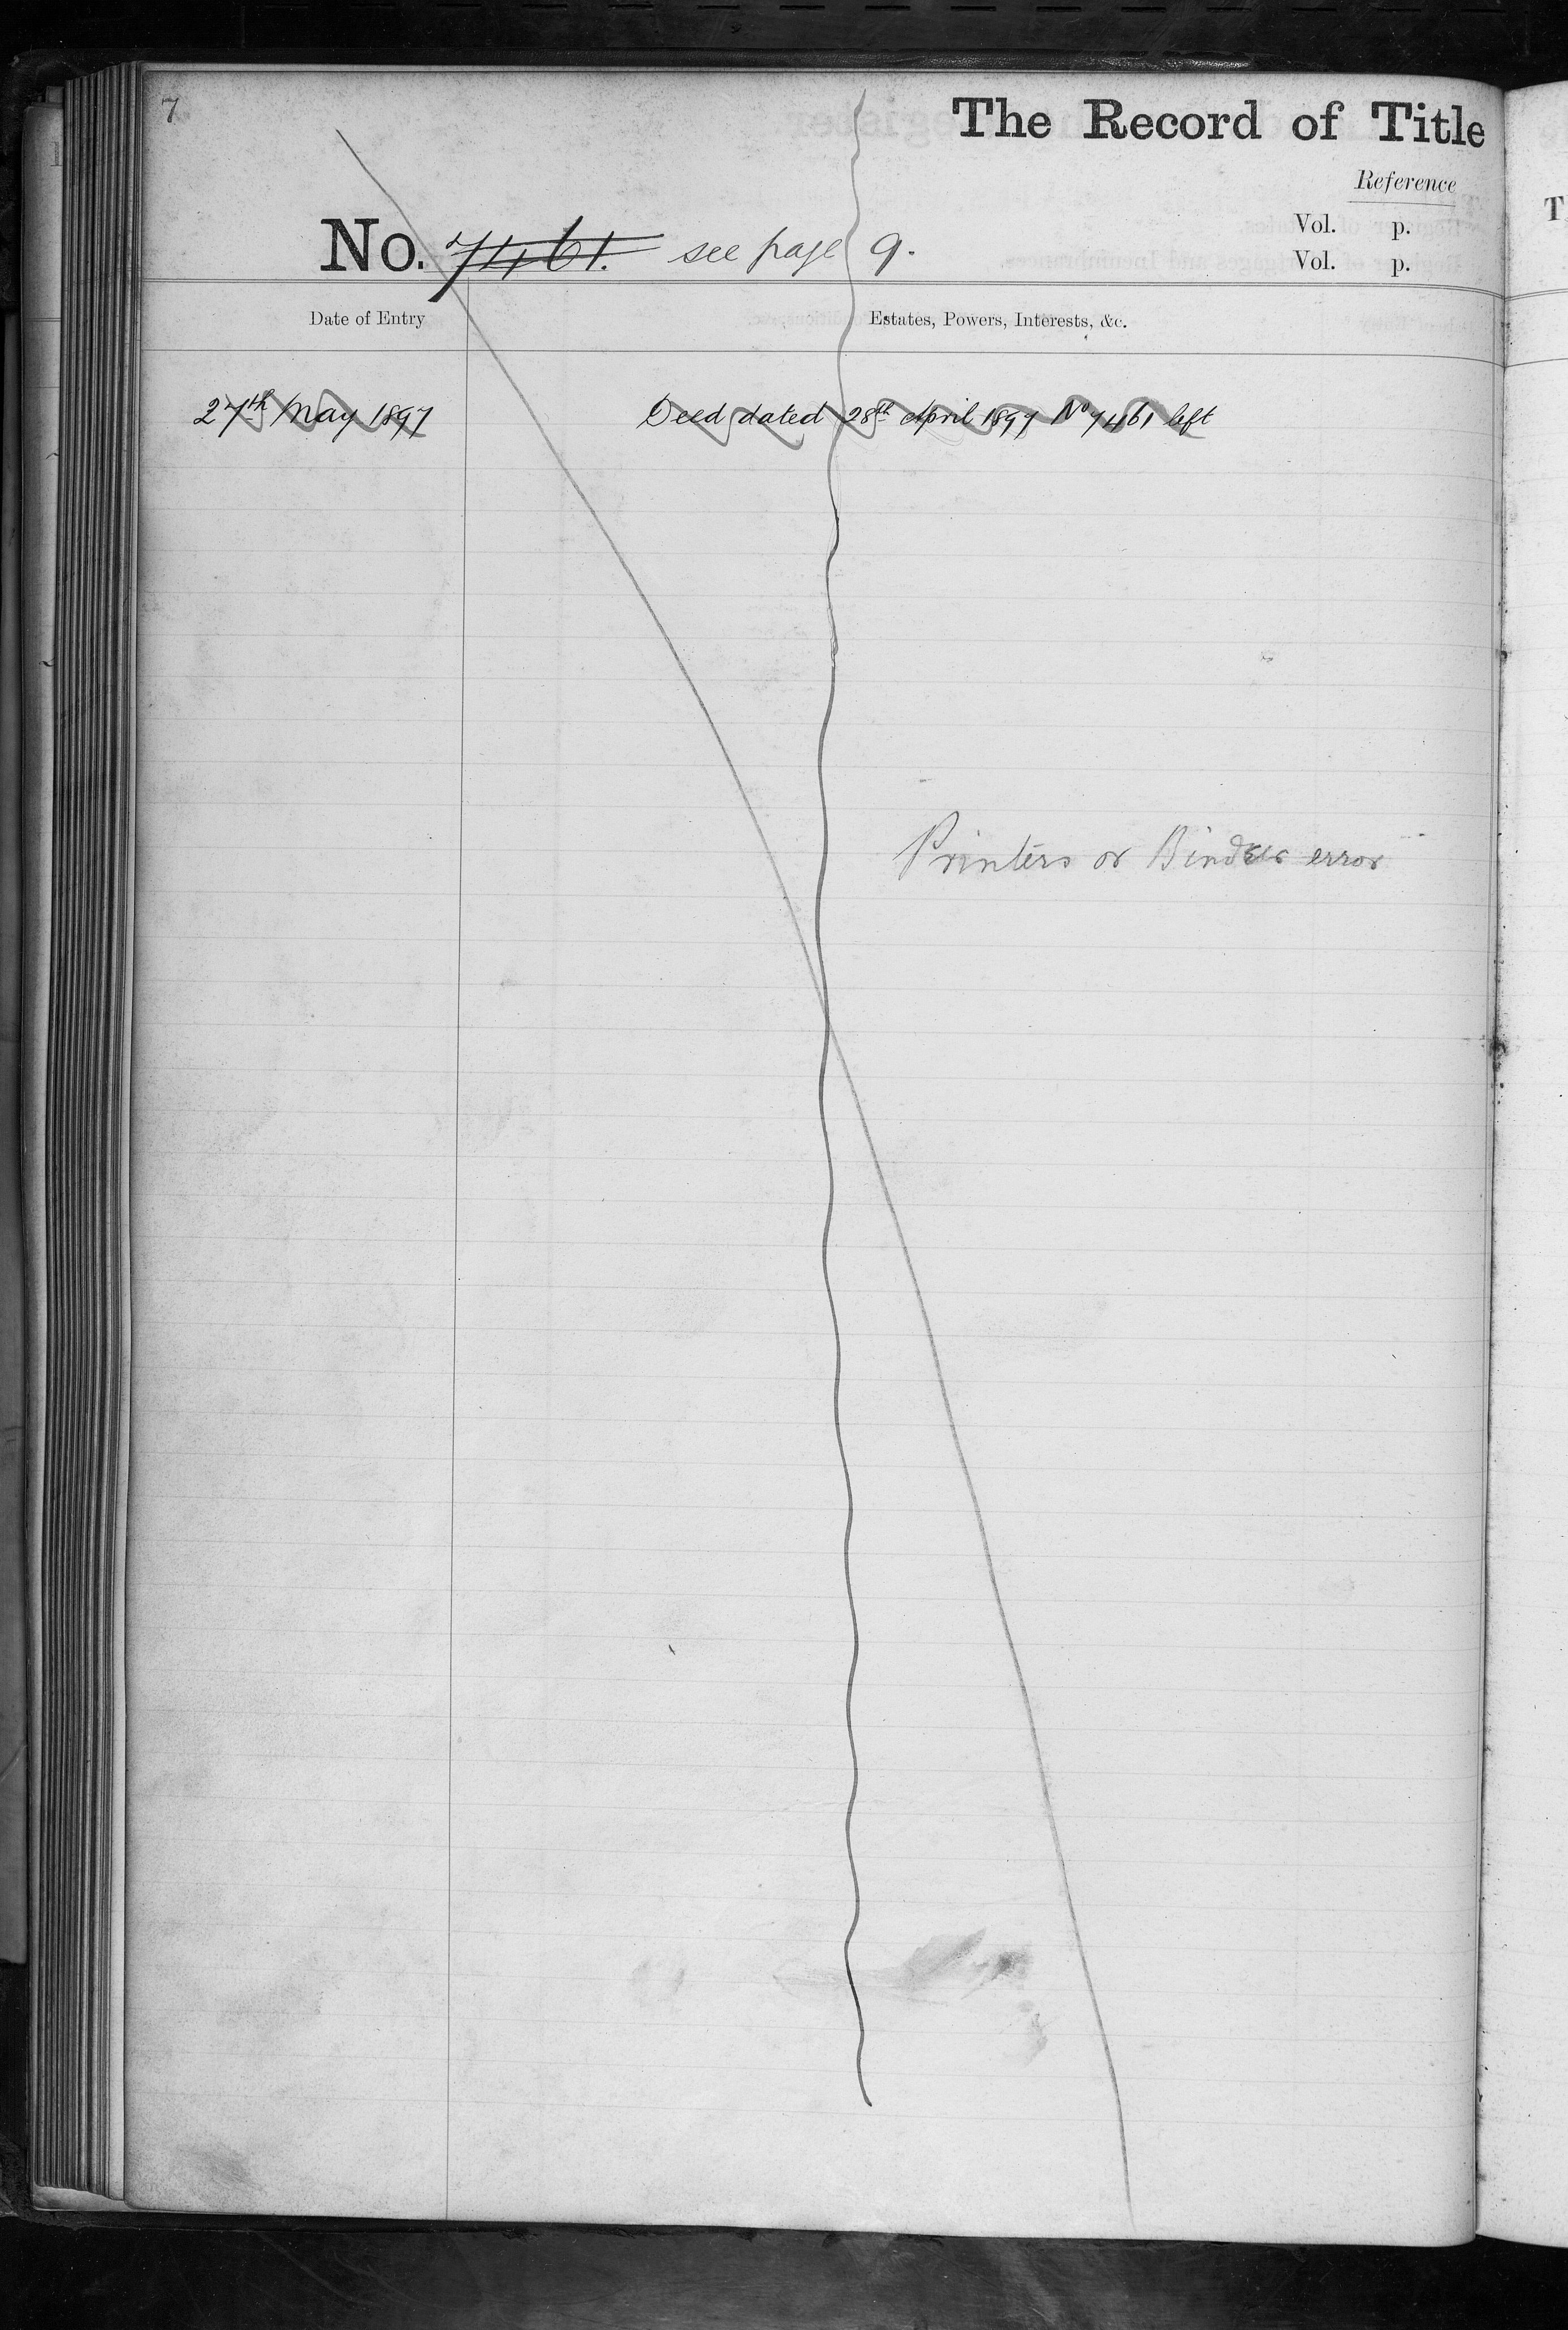 7
The Record of Title
Reference
Vol. p.
No. 7461. see page 9.
Vol. p.
Date of Entry Estates, Powers, Interests, &c.
27th May 1897 Deed dated 28th April 1897 No 7461 left
Printers or Binders error
T